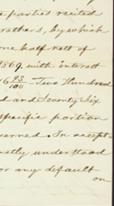 parties recited
brothers, by which
one half rett of
1869, with interest
16 93/100 - Two Hundred
d and Seventy Six
specific portion
earned. In accept
understood
or any default
on